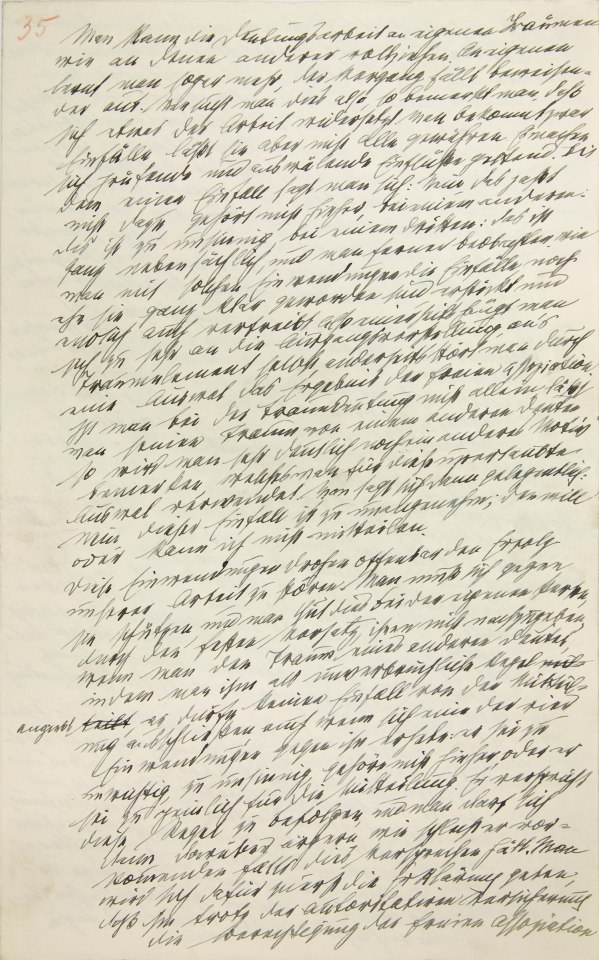 35
Man kann die Deutungsarbeit an eigenen Träumen
wie an denen anderer vollziehen. An eigenen
lernt man sogar mehr, der Vorgang fällt beweisen-
der aus. Versucht man dies also, so bemerkt man, daß
sich etwas der Arbeit widersetzt. Man bekommt zwar
Einfälle, läßt sie aber nicht alle gewähren. Es machen
sich prüfende und auswälende Einflüsse geltend. Bei
dem einen Einfall sagt man sich: Nein, das paßt
nicht dazu, gehört nicht hieher, bei einem anderen:
das ist zu unsinnig, bei einem dritten: das ist
ganz nebensächlich, und man kann ferner beobachten wie
man mit solchen Einwendungen die Einfälle noch
ehe sie ganz klar geworden sind, erstickt und
endlich auch vertreibt. Also einerseits hängt man
sich zu sehr an die Ausgangsvorstellung, ans
Traumelement selbst, anderseits stört man durch
eine Auswal das Ergebnis der freien Assoziation.
Ist man bei der Traumdeutung nicht allein, läßt
man seinen Traum von einem anderen deuten,
so wird man sehr deutlich noch ein anderes Motiv
bemerken, welches man für diese unerlaubte
Auswal verwendet. Man sagt sich dann gelegentlich:
Nein, dieser Einfall ist zu unangenehm, den will
oder kann ich nicht mitteilen.
Diese Einwendungen drohen offenbar den Erfolg
unserer Arbeit zu stören. Man muß sich gegen
sie schützen und man tut dies bei der eigenen Person
durch den festen Vorsatz, ihnen nicht nachzugeben,
wenn man den Traum eines anderen deutet,
indem man ihm als unverbrüchliche Regel
angiebt er dürfe keinen Einfall von der Mittei-
lung ausschließen, auch wenn sich eine der vier
Einwendungen gegen ihn erhebe: er sei zu
unwichtig, zu unsinnig, gehöre nicht hieher oder er
sei zu peinlich für die Mitteilung. Er verspricht
diese Regel zu befolgen und man darf sich
dann darüber ärgern, wie schlecht er vor-
kommenden Falls dies Versprechen hält. Man
wird sich dafür zuerst die Erklärung geben,
daß ihm trotz der autoritativen Versicherung
die Berechtigung der freien Assoziation